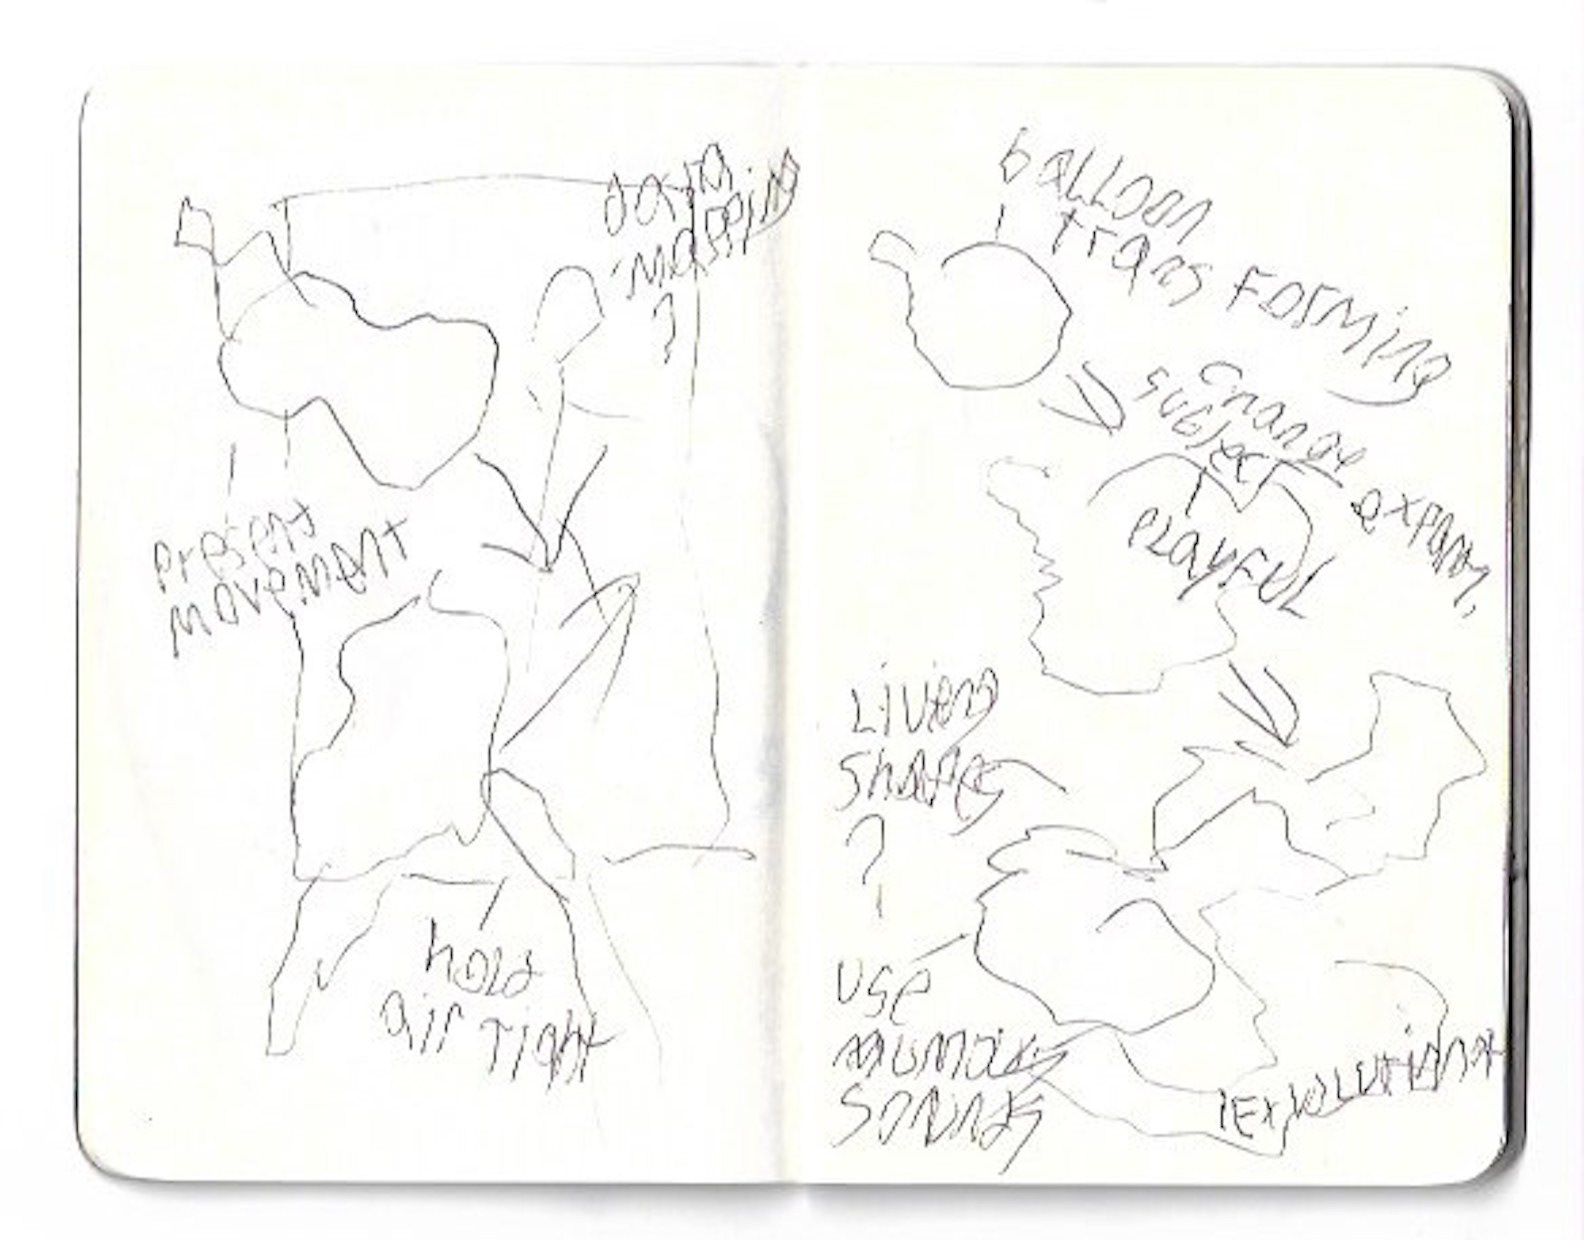 data
mapping
?
present
movement
hold
air tight
balloon
trans forming
change
subject
playful
Living
shapes
?
use
sounds